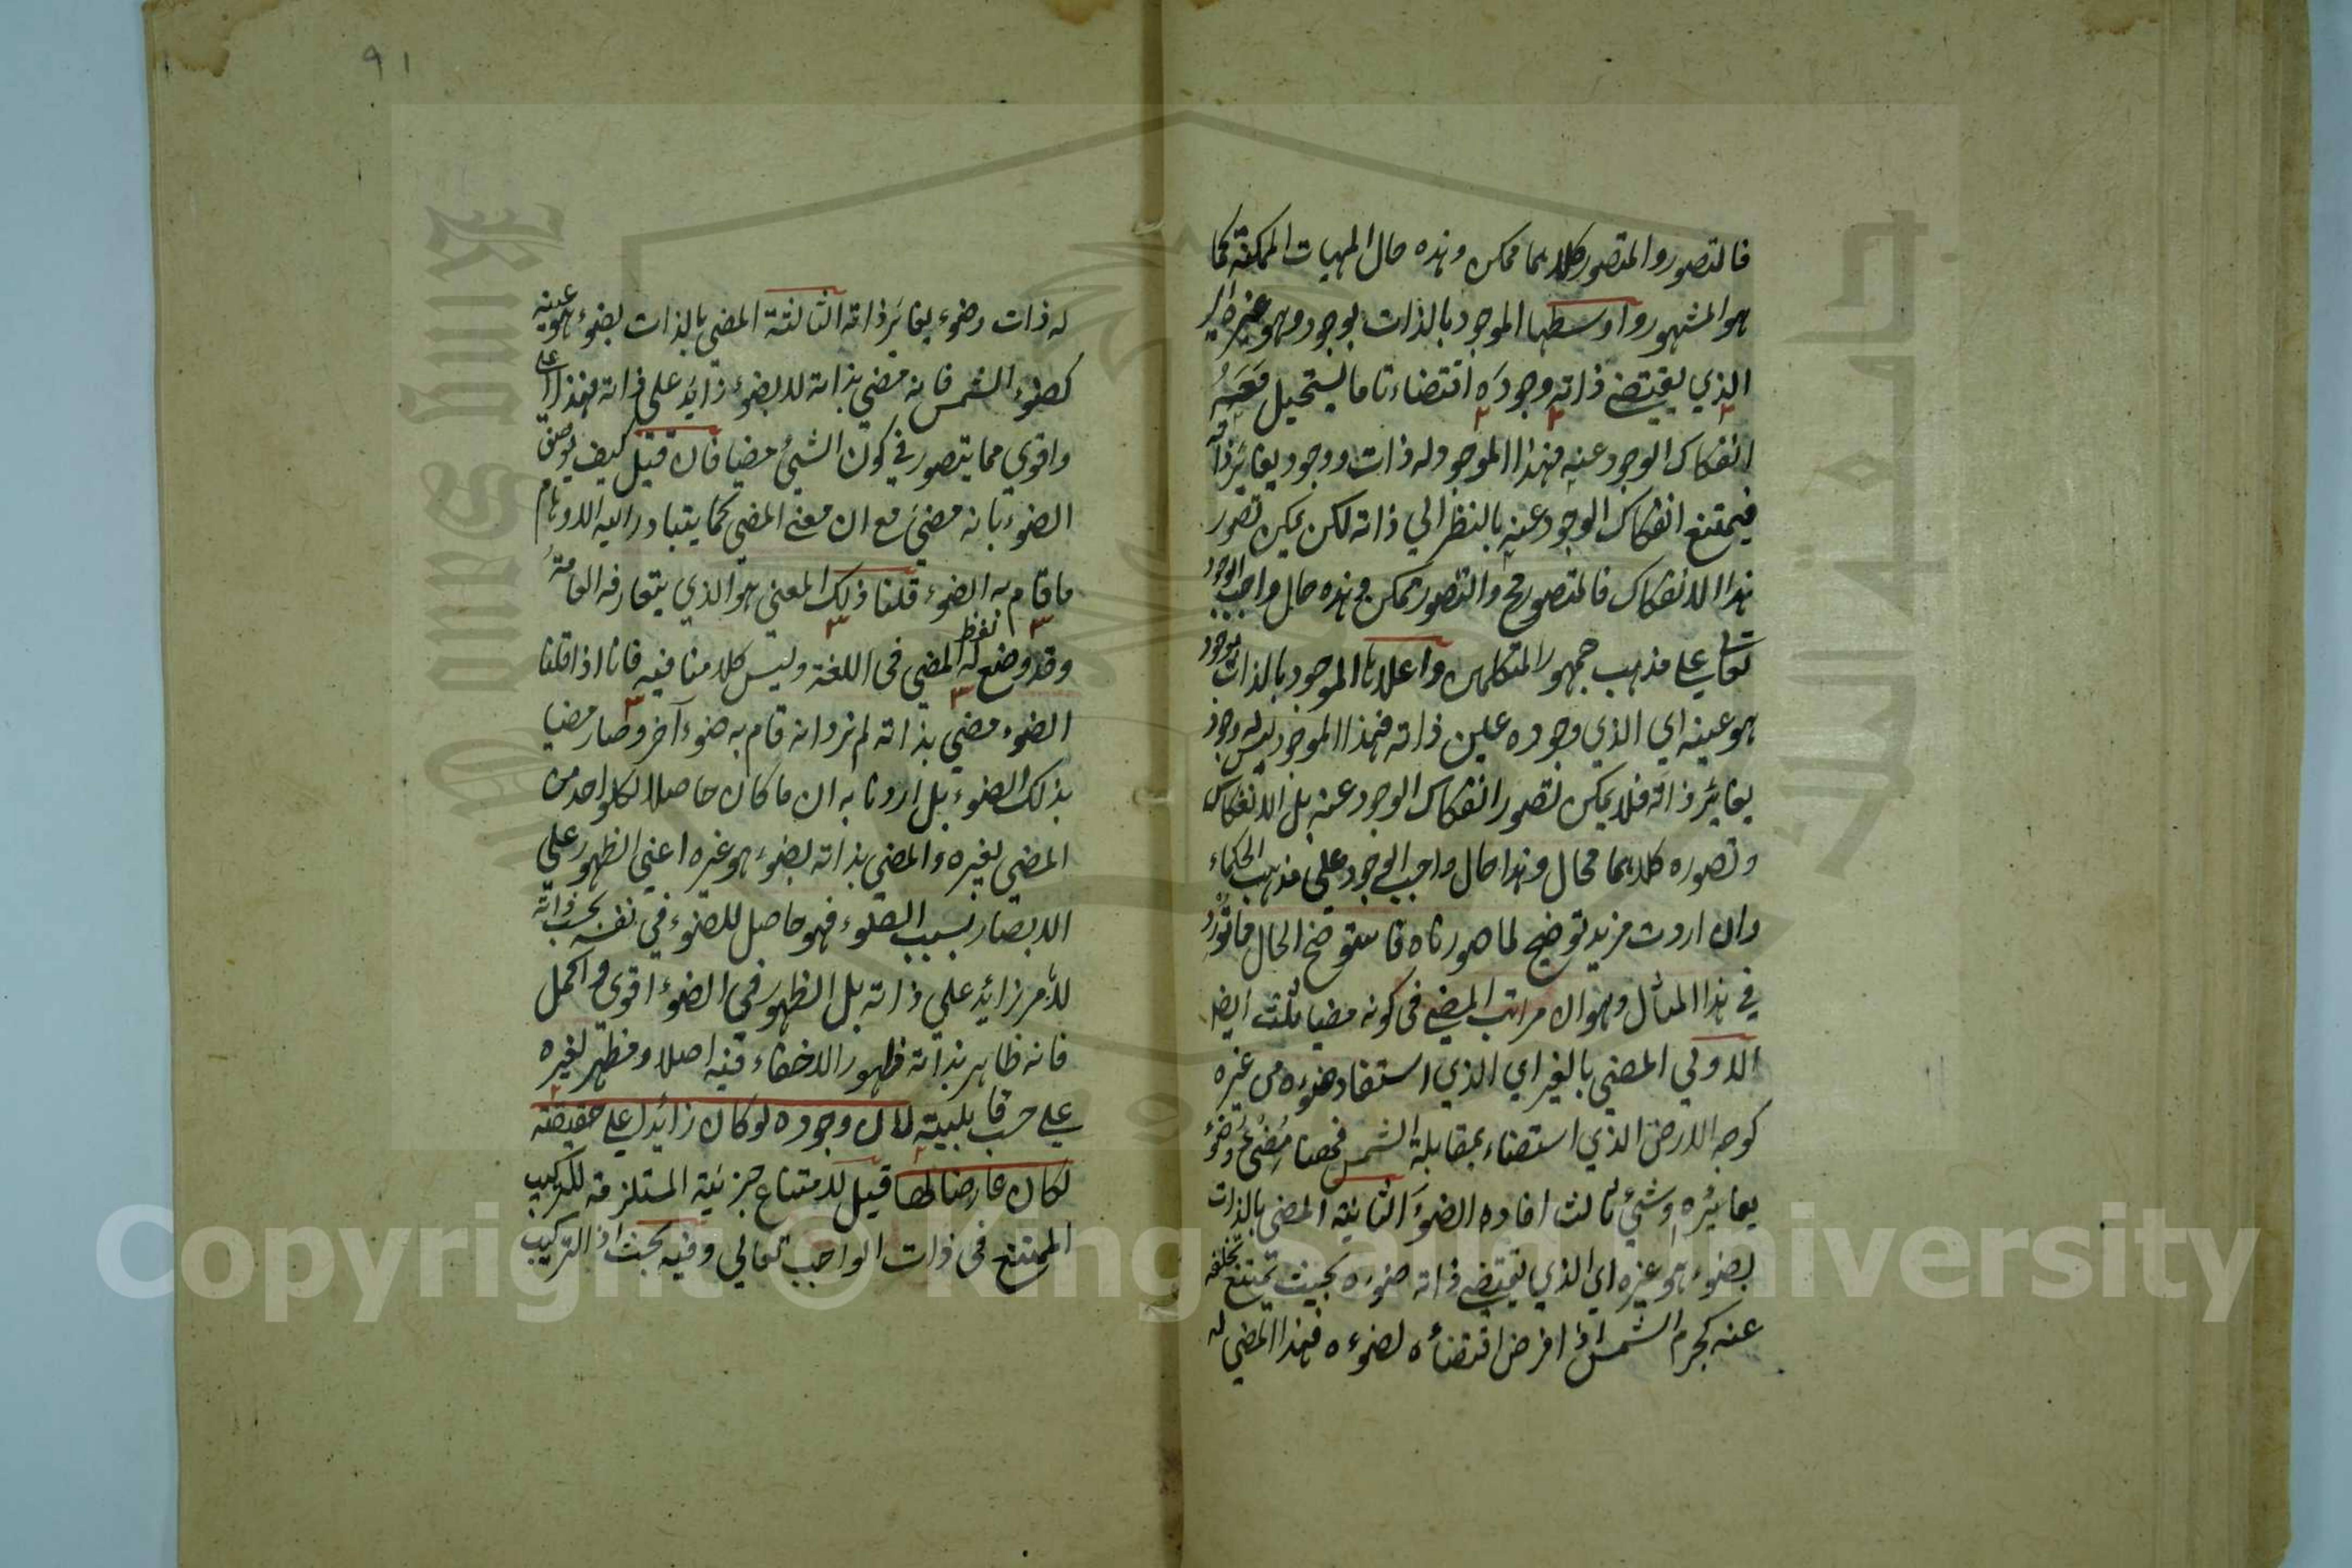 فالتصور والمتصور كلاهما ممكن وهذه حال المهيات الممكنة كما
هو المشهور واوسطها الموجود بالذات بوجود وهو غيره اي
الذي يقتضي ذاته وجوده اقتضاء تاما يستحيل معه
انفكاك الوجود عنه فهذا الموجود له ذات ووجود يغاير ذاته
فيمتنع انفكاك الوجود عنه بالنظر الي ذاته لكن يمكن تصور
هذا الانفكاك فالمتصور مح والتصور ممكن وهذه حال واجب الوجود
تعالي علي مذهب جمهور المتكلمين واعلاها الموجود بالذات بوجود
هو عينه اي الذي وجوده عين ذاته فهذا الموجود ليس له وجود
يغاير ذاته فلا يمكن تصور انفكاك الوجود عنه بل الانفكاك
وتصوره كلاهما محال وهذا حال واجب الوجود علي مذهب الحكماء
وان اردت مزيد توضيح لما صورناه فاستوضح الحال
في هذا المثال وهو ان مراتب المضي في كونه مضيا ثلث ايضا
الاولي المضي بالغير اي الذي استفاد ضوءه من غيره
كوجه الارض الذي استضاء بمقابلة الشمس فهنا مضئ وضوء
يغايره وشئ ثالث افاده الضوء الثانية المضي بالذات
بضوء هو غيره اي الذي يقتضي ذاته ضوءه بحيث يمتنع تخلفه
عنه كجرم الشمس اذا فرض اقتضاؤه لضوءه فهذا المضي له
٩١
له ذات وضوء يغاير ذاته الثالثة المضي بالذات بضوء هو عينه
كضوء الشمس فانه مضي بذاته لا بضوء زايد علي ذاته فهذا اعلي
واقوي مما يتصور في كون الشئ مضيا فان قيل كيف يوصف
الضوء بانه مضئ مع ان معني المضي كما يتبادر اليه الاوهام
ما قام به الضوء قلنا ذلك المعني هو الذي يتعارفه العامة
وقد وضع له لفظ المضي في اللغة وليس كلامنا فيه فانا اذا قلنا
الضوء مضي بذاته لم نرد انه قام به ضوء آخر وصار مضيا
بذلك الضوء بل اردنا به ان ما كان حاصلا لكل واحد من
المضي لغيره والمضي بذاته بضوء هو غيره اعني الظهور علي
الابصار بسبب الضوء فهو حاصل للضوء في نفسه بحسب ذاته
لا لامر زائد علي ذاته بل الظهور في الضوء اقوي واكمل
فانه ظاهر بذاته ظهورا لا خفاء فيه اصلا ومظهر لغيره
علي حسب قابليته لان وجوده لو كان زائدا علي حقيقته
لكان عارضا لها قيل لامتناع جزئية المستلزمة للتركيب
الممتنع في ذات الواجب تعالي وفيه بحث اذ التركيب
Copyright © King Saud University